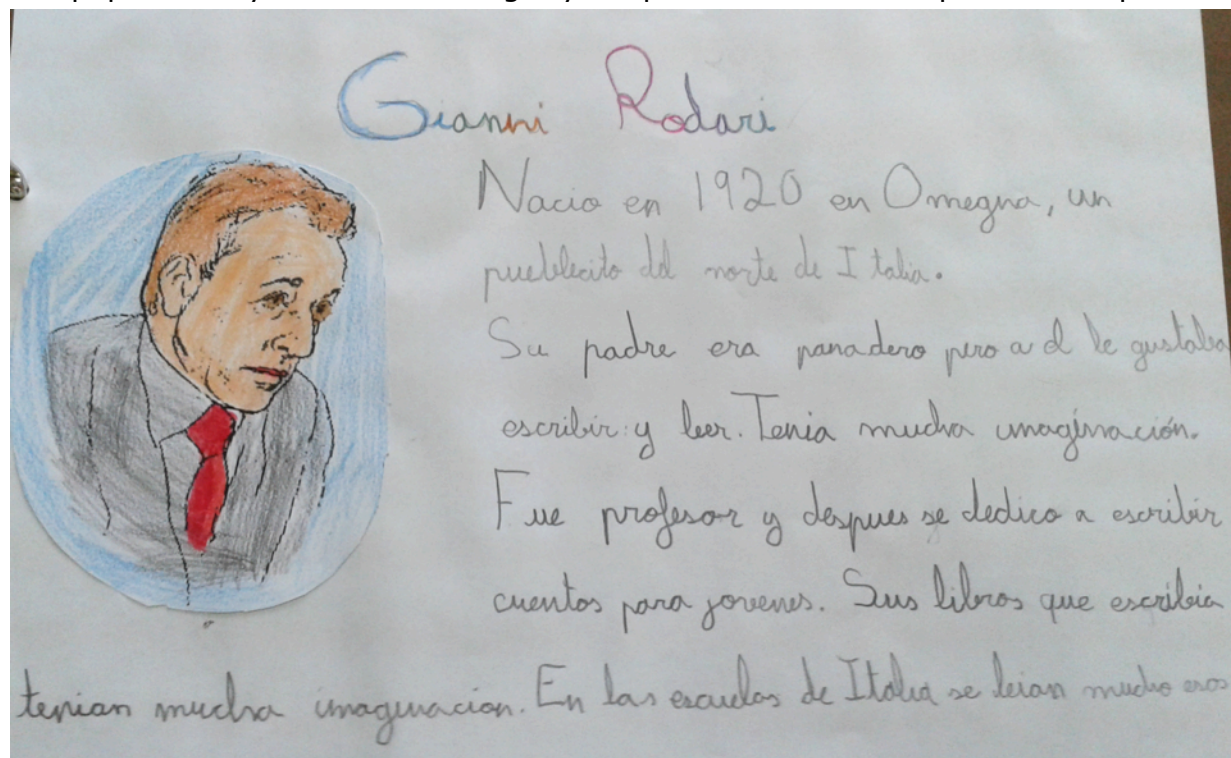 Gianni Rodari
Nacio en 1920 en Omegna, un
pueblecito del norte de Italia.
Su padre era panadero pero a el le gustaba
escribir y leer. Tenia mucha imaginación.
Fue profesor y despues se dedico a escribir
cuentos para jovenes. Sus libros que escribia
tenian mucha imaginacion. En las escuelas de Italia se leian mucho esos